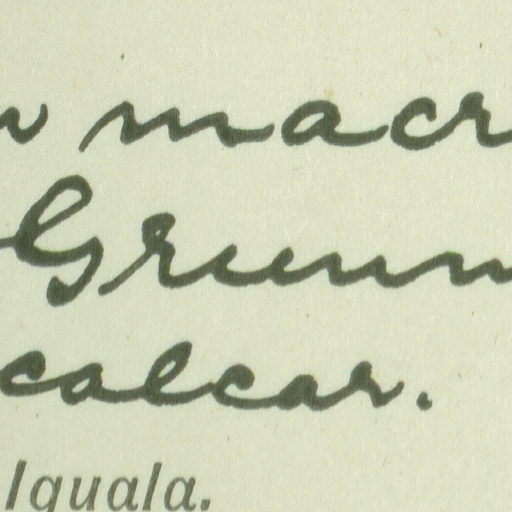 macr
Grunn
calcar.
Iguala.